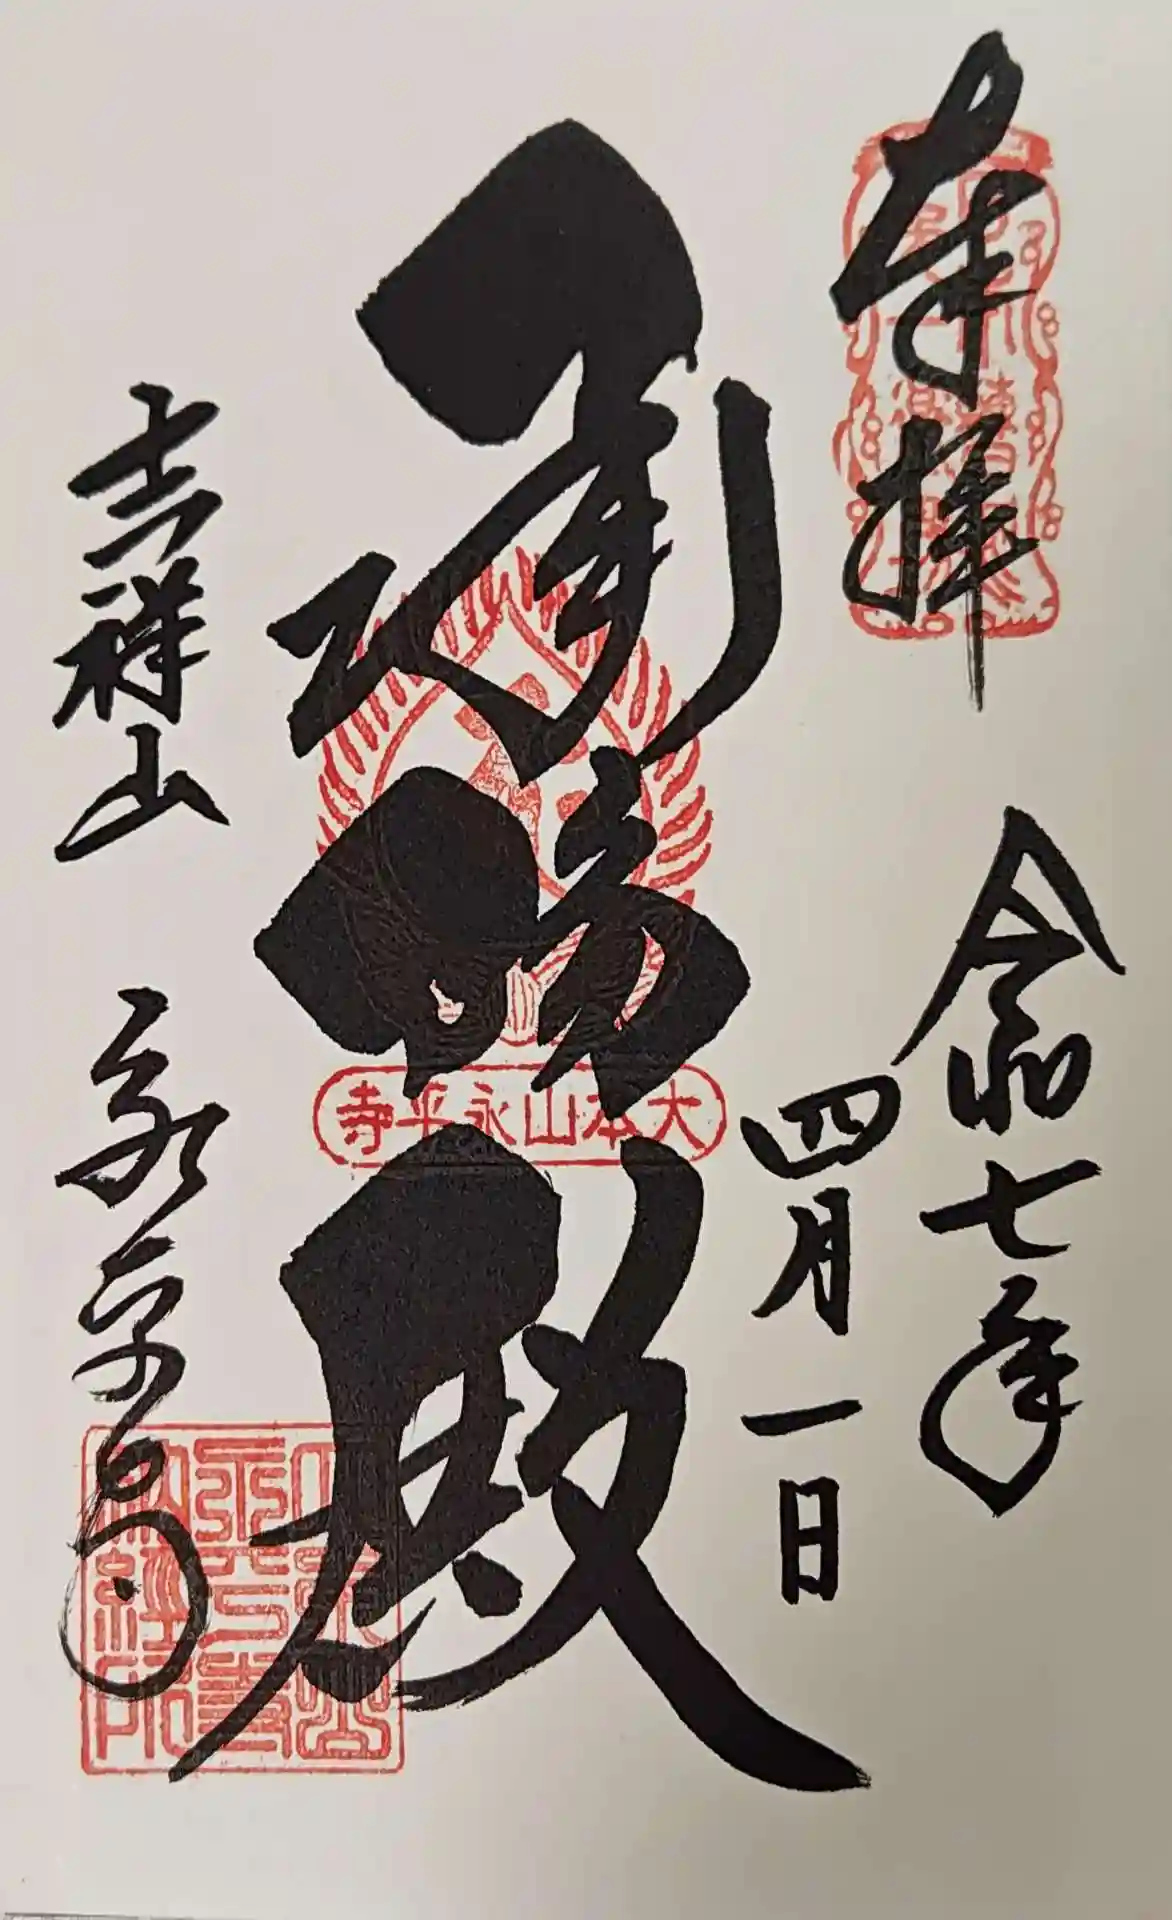 奉拝
令和七年
四月一日
承陽殿
大本山永平寺
吉祥山 永平寺